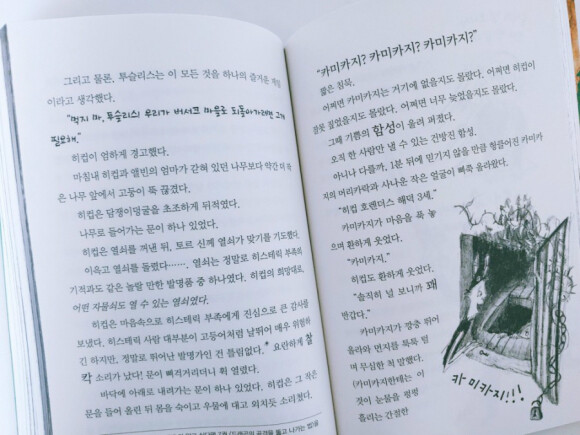 그리고 물론, 투슬리스는 이 모든 것을 하나의 즐거운 게임
이라고 생각했다.
"먹지 마, 투슬리스! 우리가 버서크 마을로 되돌아가려면 그게
필요해."
히컵이 엄하게 경고했다.
마침내 히컵과 앨빈의 엄마가 갇혀 있던 나무보다 약간 더
은 나무 앞에서 고둥이 뚝 끊겼다.
히컵은 담쟁이덩굴을 초조하게 뒤적였다.
나무로 들어가는 문이 하나 있었다.
히컵은 열쇠를 꺼낸 뒤, 토르 신께 열쇠가 맞기를 기도했다.
이윽고 열쇠를 돌렸다……. 열쇠는 정말로 히스테릭 부족의
기적과도 같은 놀랄 만한 발명품 중 하나였다. 히컵의 희망대로,
어떤 자물쇠도 열 수 있는 열쇠였다.
히컵은 마음속으로 히스테릭 부족에게 진심으로 큰 감사를
보냈다. 히스테릭 사람 대부분이 고등어처럼 날뛰어 매우 위험하
긴 하지만, 정말로 뛰어난 발명가인 건 틀림없었다.* 요란하게 찰
칵 소리가 났다! 문이 삐걱거리더니 휙 열렸다.
바닥에 아래로 내려가는 문이 하나 있었다. 히컵은 그 작은
문을 들어 올린 뒤 몸을 숙이고 우물에 대고 외치듯 소리쳤다.
"카미카지? 카미카지? 카미카지?"
짧은 침묵.
어쩌면 카미카지는 거기에 없을지도 몰랐다. 어쩌면 히컵이
잘못 짚었을지도 몰랐다. 어쩌면 너무 늦었을지도 몰랐다.
그때 기쁨의 함성이 울려 퍼졌다.
오직 한 사람만 낼 수 있는 건방진 함성.
아니나 다를까, 1분 뒤에 믿기지 않을 만큼 헝클어진 카미카
지의 머리카락과 사나운 작은 얼굴이 삐죽 올라왔다.
"히컵 호렌더스 해덕 3세."
카미카지가 마음을 푹 놓
으며 환하게 웃었다.
"카미카지."
히컵도 환하게 웃었다.
"솔직히 널 보니까 꽤
반갑다."
카미카지가 깡충 뛰어
올라와 먼지를 툭툭 털
며 무심한 척 말했다.
(카미카지한테는 이
것이 눈물을 펑펑
흘리는 간절한
카미카지!!!